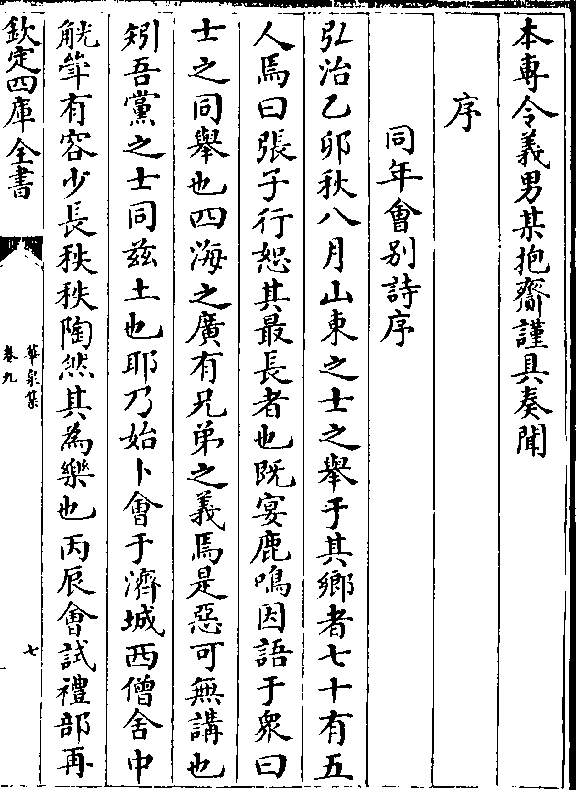 本專令義男某抱齎謹具奏聞
序
同年會别詩序
弘治乙卯秋八月山東之士之舉于其鄉者七十有五
人焉曰張子行恕其最長者也既宴鹿鳴因語于衆曰
士之同舉也四海之廣有兄弟之義焉是惡可無講也
矧吾黨之士同兹土也耶乃始卜會于濟城西僧舍中
觥斝有容少長秩秩陶然其為樂也丙辰會試禮部再
欽定四庫全書
華泉集
卷九
七